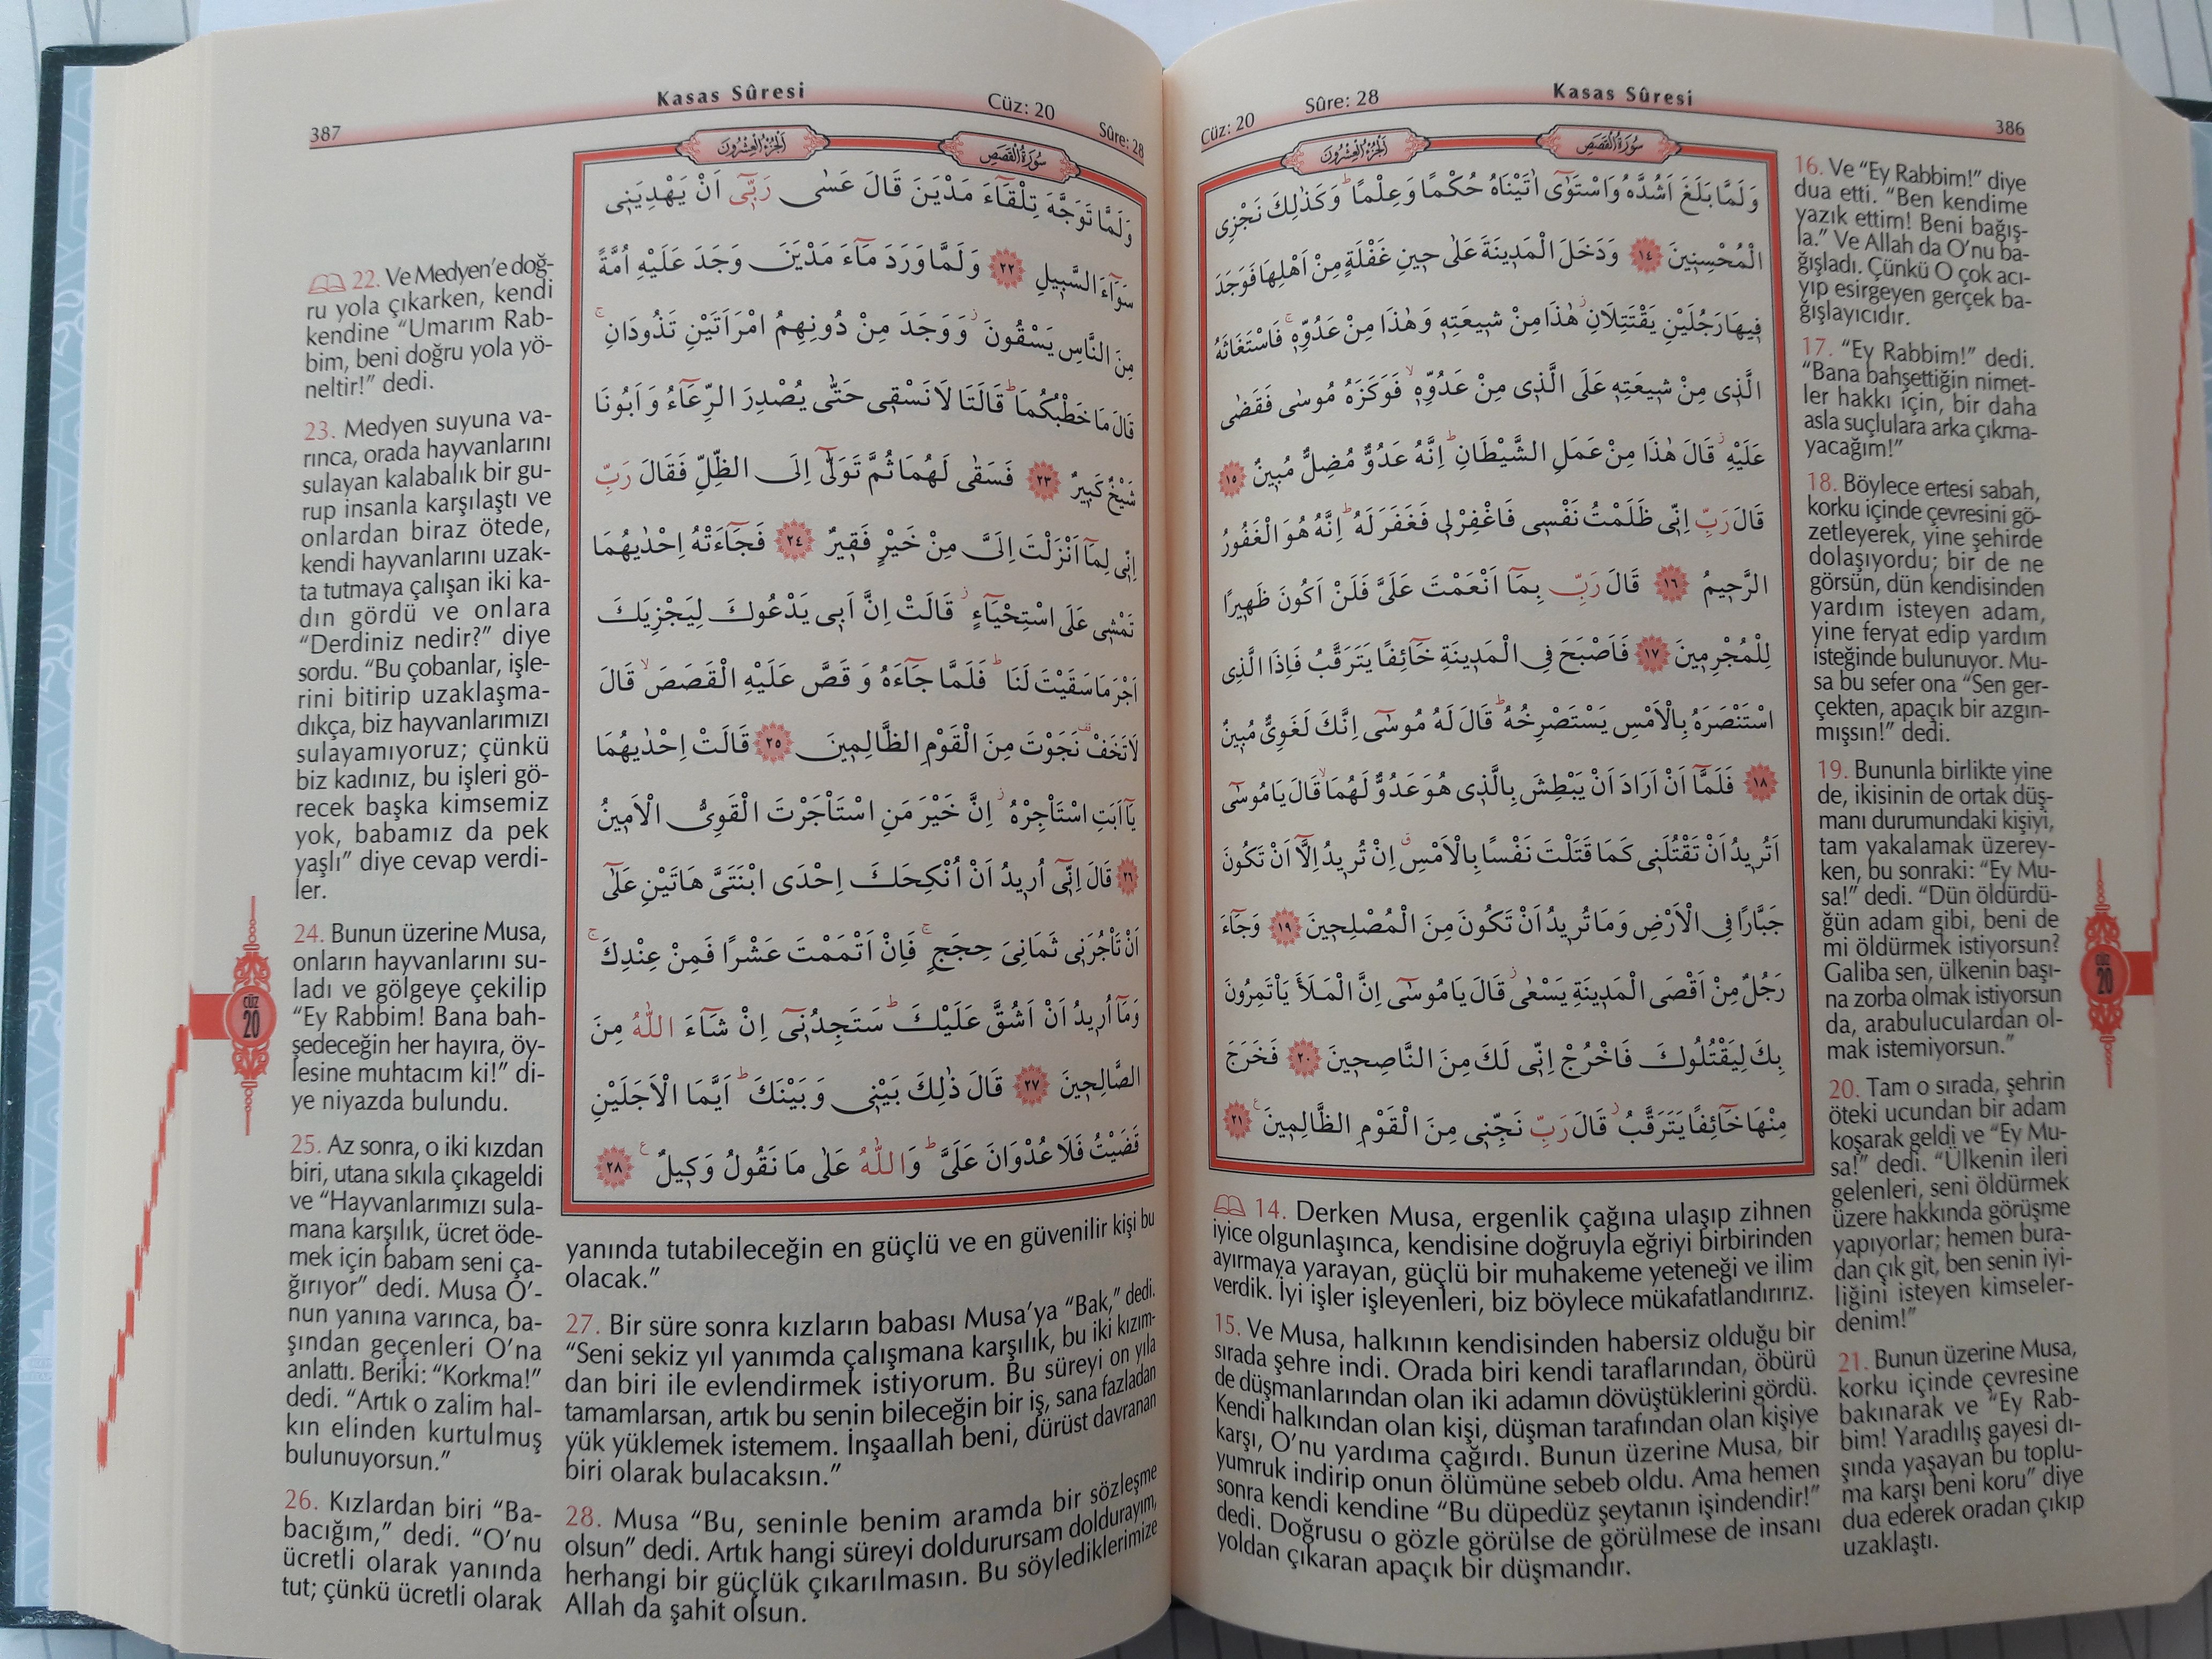 Cüz: 20
Sûre: 28
Kasas Sûresi
386
سُورَةُ الْقَصَصِ
اَلْجُزْءُ الْعِشْرُونَ
وَلَمَّا بَلَغَ اَشُدَّهُ وَاسْتَوٰٓى اٰتَيْنَاهُ حُكْمًا وَعِلْمًاۜ وَكَذٰلِكَ نَجْزِي
الْمُحْسِن۪ينَ ﴿١٤﴾ وَدَخَلَ الْمَد۪ينَةَ عَلٰى ح۪ينِ غَفْلَةٍ مِنْ اَهْلِهَا فَوَجَدَ
ف۪يهَا رَجُلَيْنِ يَقْتَتِلَانِۘ هٰذَا مِنْ ش۪يعَتِه۪ وَهٰذَا مِنْ عَدُوِّه۪ۚ فَاسْتَغَاثَهُ
الَّذ۪ي مِنْ ش۪يعَتِه۪ عَلَى الَّذ۪ي مِنْ عَدُوِّه۪ۙ فَوَكَزَهُ مُوسٰى فَقَضٰى
عَلَيْهِۘ قَالَ هٰذَا مِنْ عَمَلِ الشَّيْطَانِۜ اِنَّهُ عَدُوٌّ مُضِلٌّ مُب۪ينٌ ﴿١٥﴾
قَالَ رَبِّ اِنّ۪ي ظَلَمْتُ نَفْس۪ي فَاغْفِرْ ل۪ي فَغَفَرَ لَهُۜ اِنَّهُ هُوَ الْغَفُورُ
الرَّح۪يمُ ﴿١٦﴾ قَالَ رَبِّ بِمَٓا اَنْعَمْتَ عَلَيَّ فَلَنْ اَكُونَ ظَه۪يرًا
لِلْمُجْرِم۪ينَ ﴿١٧﴾ فَاَصْبَحَ فِي الْمَد۪ينَةِ خَٓائِفًا يَتَرَقَّبُ فَاِذَا الَّذِي
اسْتَنْصَرَهُ بِالْاَمْسِ يَسْتَصْرِخُهُۜ قَالَ لَهُ مُوسٰٓى اِنَّكَ لَغَوِيٌّ مُب۪ينٌ
﴿١٨﴾ فَلَمَّٓا اَنْ اَرَادَ اَنْ يَبْطِشَ بِالَّذ۪ي هُوَ عَدُوٌّ لَهُمَاۙ قَالَ يَا مُوسٰٓى
اَتُر۪يدُ اَنْ تَقْتُلَن۪ي كَمَا قَتَلْتَ نَفْسًا بِالْاَمْسِۗ اِنْ تُر۪يدُ اِلَّٓا اَنْ تَكُونَ
جَبَّارًا فِي الْاَرْضِ وَمَا تُر۪يدُ اَنْ تَكُونَ مِنَ الْمُصْلِح۪ينَ ﴿١٩﴾ وَجَٓاءَ
رَجُلٌ مِنْ اَقْصَى الْمَد۪ينَةِ يَسْعٰىۘ قَالَ يَا مُوسٰٓى اِنَّ الْمَلَاَ يَأْتَمِرُونَ
بِكَ لِيَقْتُلُوكَ فَاخْرُجْ اِنّ۪ي لَكَ مِنَ النَّاصِح۪ينَ ﴿٢٠﴾ فَخَرَجَ
مِنْهَا خَٓائِفًا يَتَرَقَّبُۘ قَالَ رَبِّ نَجِّن۪ي مِنَ الْقَوْمِ الظَّالِم۪ينَ۟ ﴿٢١﴾
14. Derken Musa, ergenlik çağına ulaşıp zihnen
iyice olgunlaşınca, kendisine doğruyla eğriyi birbirinden
ayırmaya yarayan, güçlü bir muhakeme yeteneği ve ilim
verdik. İyi işler işleyenleri, biz böylece mükafatlandırırız.
15. Ve Musa, halkının kendisinden habersiz olduğu bir
sırada şehre indi. Orada biri kendi taraflarından, öbürü
de düşmanlarından olan iki adamın dövüştüklerini gördü.
Kendi halkından olan kişi, düşman tarafından olan kişiye
karşı, O’nu yardıma çağırdı. Bunun üzerine Musa, bir
yumruk indirip onun ölümüne sebeb oldu. Ama hemen
sonra kendi kendine “Bu düpedüz şeytanın işindendir!”
dedi. Doğrusu o gözle görülse de görülmese de insanı
yoldan çıkaran apaçık bir düşmandır.
16. Ve “Ey Rabbim!” diye
dua etti. “Ben kendime
yazık ettim! Beni bağış-
la.” Ve Allah da O’nu ba-
ğışladı. Çünkü O çok acı-
yıp esirgeyen gerçek ba-
ğışlayıcıdır.
17. “Ey Rabbim!” dedi.
“Bana bahşettiğin nimet-
ler hakkı için, bir daha
asla suçlulara arka çıkma-
yacağım!”
18. Böylece ertesi sabah,
korku içinde çevresini gö-
zetleyerek, yine şehirde
dolaşıyordu; bir de ne
görsün, dün kendisinden
yardım isteyen adam,
yine feryat edip yardım
isteğinde bulunuyor. Mu-
sa bu sefer ona “Sen ger-
çekten, apaçık bir azgın-
mışsın!” dedi.
19. Bununla birlikte yine
de, ikisinin de ortak düş-
manı durumundaki kişiyi,
tam yakalamak üzerey-
ken, bu sonraki: “Ey Mu-
sa!” dedi. “Dün öldürdü-
ğün adam gibi, beni de
mi öldürmek istiyorsun?
Galiba sen, ülkenin başı-
na zorba olmak istiyorsun
da, arabuluculardan ol-
mak istemiyorsun.”
20. Tam o sırada, şehrin
öteki ucundan bir adam
koşarak geldi ve “Ey Mu-
sa!” dedi. “Ülkenin ileri
gelenleri, seni öldürmek
üzere hakkında görüşme
yapıyorlar; hemen bura-
dan çık git, ben senin iyi-
liğini isteyen kimseler-
denim!”
21. Bunun üzerine Musa,
korku içinde çevresine
bakınarak ve “Ey Rab-
bim! Yaradılış gayesi dı-
şında yaşayan bu toplu-
ma karşı beni koru” diye
dua ederek oradan çıkıp
uzaklaştı.
cüz
20
387
Kasas Sûresi
Cüz: 20
Sûre: 28
سُورَةُ الْقَصَصِ
اَلْجُزْءُ الْعِشْرُونَ
وَلَمَّا تَوَجَّهَ تِلْقَٓاءَ مَدْيَنَ قَالَ عَسٰى رَبّ۪ٓي اَنْ يَهْدِيَن۪ي
سَوَٓاءَ السَّب۪يلِ ﴿٢٢﴾ وَلَمَّا وَرَدَ مَٓاءَ مَدْيَنَ وَجَدَ عَلَيْهِ اُمَّةً
مِنَ النَّاسِ يَسْقُونَۘ وَوَجَدَ مِنْ دُونِهِمُ امْرَاَتَيْنِ تَذُودَانِۚ
قَالَ مَا خَطْبُكُمَاۜ قَالَتَا لَا نَسْق۪ي حَتّٰى يُصْدِرَ الرِّعَٓاءُ وَاَبُونَا
شَيْخٌ كَب۪يرٌ ﴿٢٣﴾ فَسَقٰى لَهُمَا ثُمَّ تَوَلّٰٓى اِلَى الظِّلِّ فَقَالَ رَبِّ
اِنّ۪ي لِمَٓا اَنْزَلْتَ اِلَيَّ مِنْ خَيْرٍ فَق۪يرٌ ﴿٢٤﴾ فَجَٓاءَتْهُ اِحْدٰيهُمَا
تَمْش۪ي عَلَى اسْتِحْيَٓاءٍۘ قَالَتْ اِنَّ اَب۪ي يَدْعُوكَ لِيَجْزِيَكَ
اَجْرَ مَا سَقَيْتَ لَنَاۜ فَلَمَّا جَٓاءَهُ وَقَصَّ عَلَيْهِ الْقَصَصَۙ قَالَ
لَا تَخَفْ۠ نَجَوْتَ مِنَ الْقَوْمِ الظَّالِم۪ينَ ﴿٢٥﴾ قَالَتْ اِحْدٰيهُمَا
يَٓا اَبَتِ اسْتَأْجِرْهُۘ اِنَّ خَيْرَ مَنِ اسْتَأْجَرْتَ الْقَوِيُّ الْاَم۪ينُ
﴿٢٦﴾ قَالَ اِنّ۪ٓي اُر۪يدُ اَنْ اُنْكِحَكَ اِحْدَى ابْنَتَيَّ هَاتَيْنِ عَلٰٓى
اَنْ تَأْجُرَن۪ي ثَمَانِيَ حِجَجٍۚ فَاِنْ اَتْمَمْتَ عَشْرًا فَمِنْ عِنْدِكَۚ
وَمَٓا اُر۪يدُ اَنْ اَشُقَّ عَلَيْكَۜ سَتَجِدُن۪ٓي اِنْ شَٓاءَ اللّٰهُ مِنَ
الصَّالِح۪ينَ ﴿٢٧﴾ قَالَ ذٰلِكَ بَيْن۪ي وَبَيْنَكَۜ اَيَّمَا الْاَجَلَيْنِ
قَضَيْتُ فَلَا عُدْوَانَ عَلَيَّۜ وَاللّٰهُ عَلٰى مَا نَقُولُ وَك۪يلٌ۟ ﴿٢٨﴾
22. Ve Medyen’e doğ-
ru yola çıkarken, kendi
kendine “Umarım Rab-
bim, beni doğru yola yö-
neltir!” dedi.
23. Medyen suyuna va-
rınca, orada hayvanlarını
sulayan kalabalık bir gu-
rup insanla karşılaştı ve
onlardan biraz ötede,
kendi hayvanlarını uzak-
ta tutmaya çalışan iki ka-
dın gördü ve onlara
“Derdiniz nedir?” diye
sordu. “Bu çobanlar, işle-
rini bitirip uzaklaşma-
dıkça, biz hayvanlarımızı
sulayamıyoruz; çünkü
biz kadınız, bu işleri gö-
recek başka kimsemiz
yok, babamız da pek
yaşlı” diye cevap verdi-
ler.
24. Bunun üzerine Musa,
onların hayvanlarını su-
ladı ve gölgeye çekilip
“Ey Rabbim! Bana bah-
şedeceğin her hayıra, öy-
lesine muhtacım ki!” di-
ye niyazda bulundu.
25. Az sonra, o iki kızdan
biri, utana sıkıla çıkageldi
ve “Hayvanlarımızı sula-
mana karşılık, ücret öde-
mek için babam seni ça-
ğırıyor” dedi. Musa O’-
nun yanına varınca, ba-
şından geçenleri O’na
anlattı. Beriki: “Korkma!”
dedi. “Artık o zalim hal-
kın elinden kurtulmuş
bulunuyorsun.”
26. Kızlardan biri “Ba-
bacığım,” dedi. “O’nu
ücretli olarak yanında
tut; çünkü ücretli olarak
yanında tutabileceğin en güçlü ve en güvenilir kişi bu
olacak.”
27. Bir süre sonra kızların babası Musa’ya “Bak,” dedi.
“Seni sekiz yıl yanımda çalışmana karşılık, bu iki kızım-
dan biri ile evlendirmek istiyorum. Bu süreyi on yıla
tamamlarsan, artık bu senin bileceğin bir iş, sana fazladan
yük yüklemek istemem. İnşaallah beni, dürüst davranan
biri olarak bulacaksın.”
28. Musa “Bu, seninle benim aramda bir sözleşme
olsun” dedi. Artık hangi süreyi doldurursam doldurayım,
herhangi bir güçlük çıkarılmasın. Bu söylediklerimize
Allah da şahit olsun.
cüz
20